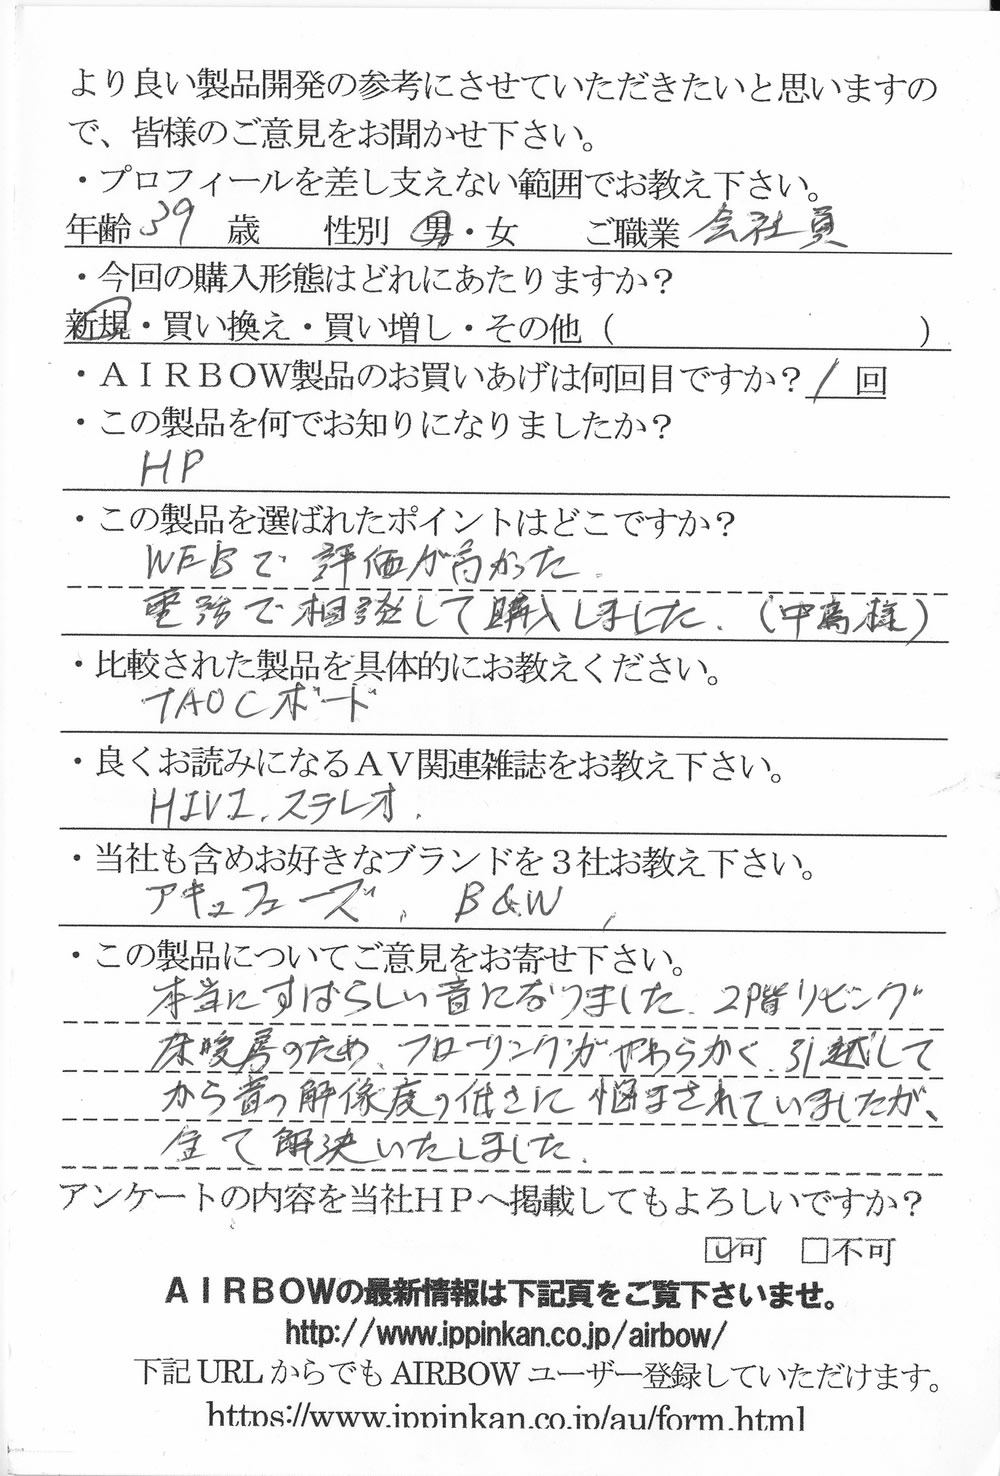 より良い製品開発の参考にさせていただきたいと思いますの
で、皆様のご意見をお聞かせ下さい。
・プロフィールを差し支えない範囲でお教え下さい。
年齢 39 歳 性別 男・女 ご職業 会社員
・今回の購入形態はどれにあたりますか？
新規・買い換え・買い増し・その他（ ）
・ＡＩＲＢＯＷ製品のお買いあげは何回目ですか？ 1 回
・この製品を何でお知りになりましたか？
HP
・この製品を選ばれたポイントはどこですか？
WEBで 評価が高かった.
電話で相談して購入しました. (中嶌様)
・比較された製品を具体的にお教えください。
TAOCボード
・良くお読みになるＡＶ関連雑誌をお教え下さい。
HIVI. ステレオ.
・当社も含めお好きなブランドを３社お教え下さい。
アキュフェーズ, B&W,
・この製品についてご意見をお寄せ下さい。
本当にすばらしい音になりました. 2階リビング
床暖房のため、フローリングがやわらかく、引越して
から音の解像度の低さに悩まされていましたが、
全て解決いたしました.
アンケートの内容を当社ＨＰへ掲載してもよろしいですか？
☑可 □不可
ＡＩＲＢＯＷの最新情報は下記頁をご覧下さいませ。
http://www.ippinkan.co.jp/airbow/
下記 URL からでも AIRBOW ユーザー登録していただけます。
https://www.ippinkan.co.jp/au/form.html